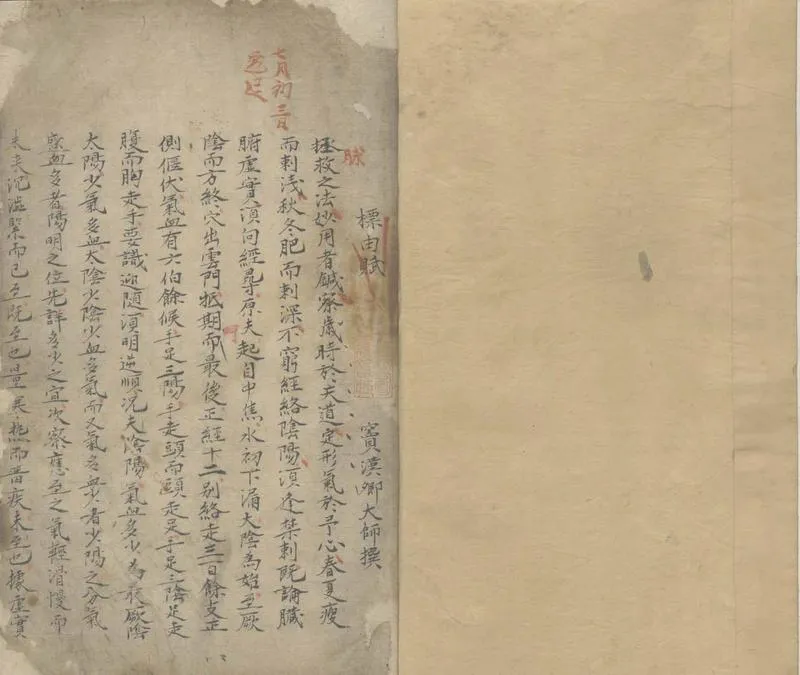 七月初三日
标由賦
竇漢卿大師撰
拯救之法妙用者鍼察歲時於天道定形氣於予心春夏瘦
而刺淺秋冬肥而刺深不窮經絡陰陽湏逢禁刺既論臟
腑虛實湏向經尋原夫起自中焦水初下漏太陰為始至厥
陰而方終穴出雲門抵期而最後正經十二別絡走三百餘支正
側偃伏氣血有六伯餘候手足三陽手走頭而頭走足手足三陰足走
腹而胸走手要識迎隨湏明逆順況夫陰陽氣血多少為最厥陰
太陽少氣多血太陰少陰少血多氣而又氣多血少者少陽之分氣
盛血多者陽明之位先詳多少之宜次察應至之氣輕滑慢而
未来沉澁緊而已至既至也量寒熱而畱疾未至也據虛實